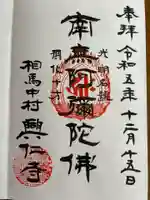 奉拝 令和五年十二月十五日
光明名號
南無阿彌陀佛
攝化十方
相馬中村 興仁寺